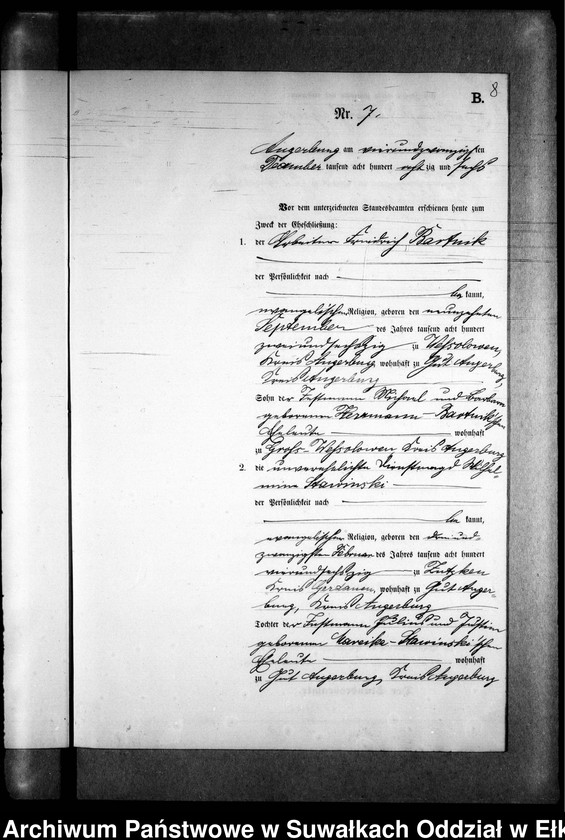 B. 8
Nr. 7.
Angerburg am vierundzwanzigsten
Dezember tausend acht hundert acht zig und sechs
Vor dem unterzeichneten Standesbeamten erschienen heute zum
Zweck der Eheschließung:
1. der Arbeiter Friedrich Bartnik
der Persönlichkeit nach
be kannt,
evangelischer Religion, geboren den neunzehnten
September des Jahres tausend acht hundert
zweiundsechszig zu Wessolowen,
Kreis Angerburg, wohnhaft zu Gut Angerburg
Kreis Angerburg
Sohn der Instmann Michael und Barbara
geborenen Herrmann-Bartnik'schen
Eheleute wohnhaft
zu Groß-Wessolowen Kreis Angerburg
2. die unverehelichte Dienstmagd Wilhel-
mine Stawinski
der Persönlichkeit nach
be kannt,
evangelischer Religion, geboren den dreiund-
zwanzigsten Februar des Jahres tausend acht hundert
vierundsechszig zu
Kreis wohnhaft zu Gut Anger-
burg, Kreis Angerburg
Tochter der Instmann Julius und Justine
geborenen Stawinski'schen
Eheleute wohnhaft
zu Gut Angerburg, Kreis Angerburg
Archiwum Państwowe w Suwałkach Oddział w Ełk